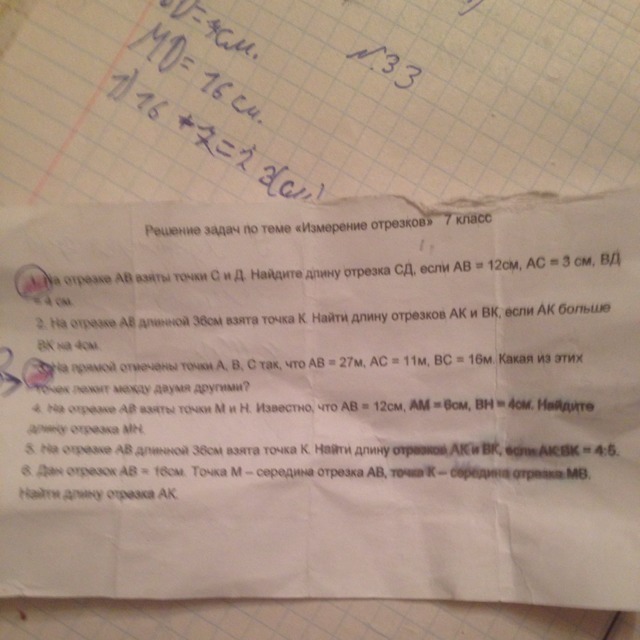 =4см.
N.33
МD= 16 см.
1) 16 + 7 = 2 3(см)
Решение задач по теме «Измерение отрезков» 7 класс
1. На отрезке АВ взяты точки С и Д. Найдите длину отрезка СД, если АВ = 12см, АС = 3 см, ВД
= 4 см.
2. На отрезке АВ длинной 36см взята точка К. Найти длину отрезков АК и ВК, если АК больше
ВК на 4см.
3. На прямой отмечены точки А, В, С так, что АВ = 27м, АС = 11м, ВС = 16м. Какая из этих
точек лежит между двумя другими?
4. На отрезке АВ взяты точки М и Н. Известно, что АВ = 12см, АМ = 6см, ВН = 4см. Найдите
длину отрезка МН.
5. На отрезке АВ длинной 36см взята точка К. Найти длину отрезков АК и ВК, если АК:ВК = 4:5.
6. Дан отрезок АВ = 16см. Точка М – середина отрезка АВ, точка К – середина отрезка МВ.
Найти длину отрезка АК.